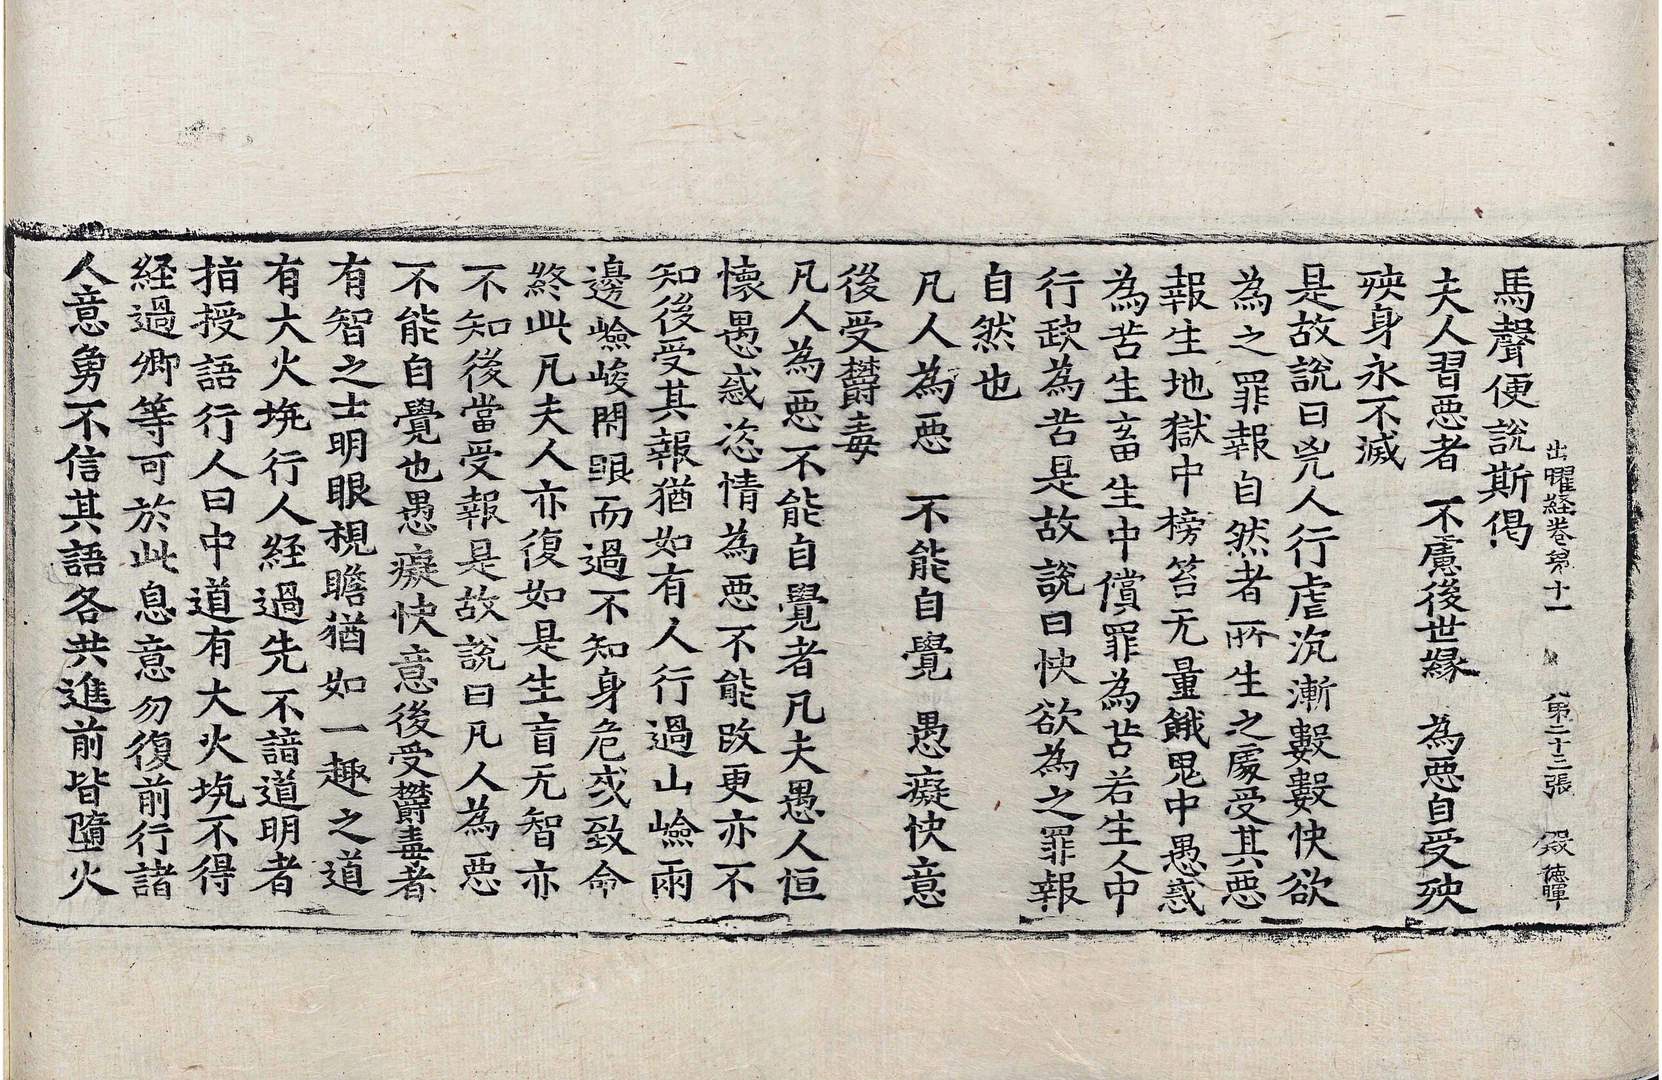 出曜経卷第十一　第二十三張　段德暉
馬聲便說斯偈
夫人習惡者　不慮後世緣　為惡自受殃
殃身永不滅
是故說曰兇人行虐沉漸數數快欲
為之罪報自然者所生之處受其惡
報生地獄中榜笞无量餓鬼中愚惑
為苦生畜生中償罪為苦若生人中
行欺為苦是故說曰快欲為之罪報
自然也
凡人為惡　不能自覺　愚癡快意
後受欝毒
凡人為惡不能自覺者凡夫愚人恒
懷愚惑恣情為惡不能改更亦不
知後受其報猶如有人行過山嶮兩
邊嶮峻閇眼而過不知身危或致命
終此凡夫人亦復如是生盲无智亦
不知後當受報是故說曰凡人為惡
不能自覺也愚癡快意後受欝毒者
有智之士明眼視瞻猶如一趣之道
有大火坑行人経過先不諳道明者
指授語行人曰中道有大火坑不得
経過卿等可於此息意勿復前行諸
人意勇不信其語各共進前皆墮火